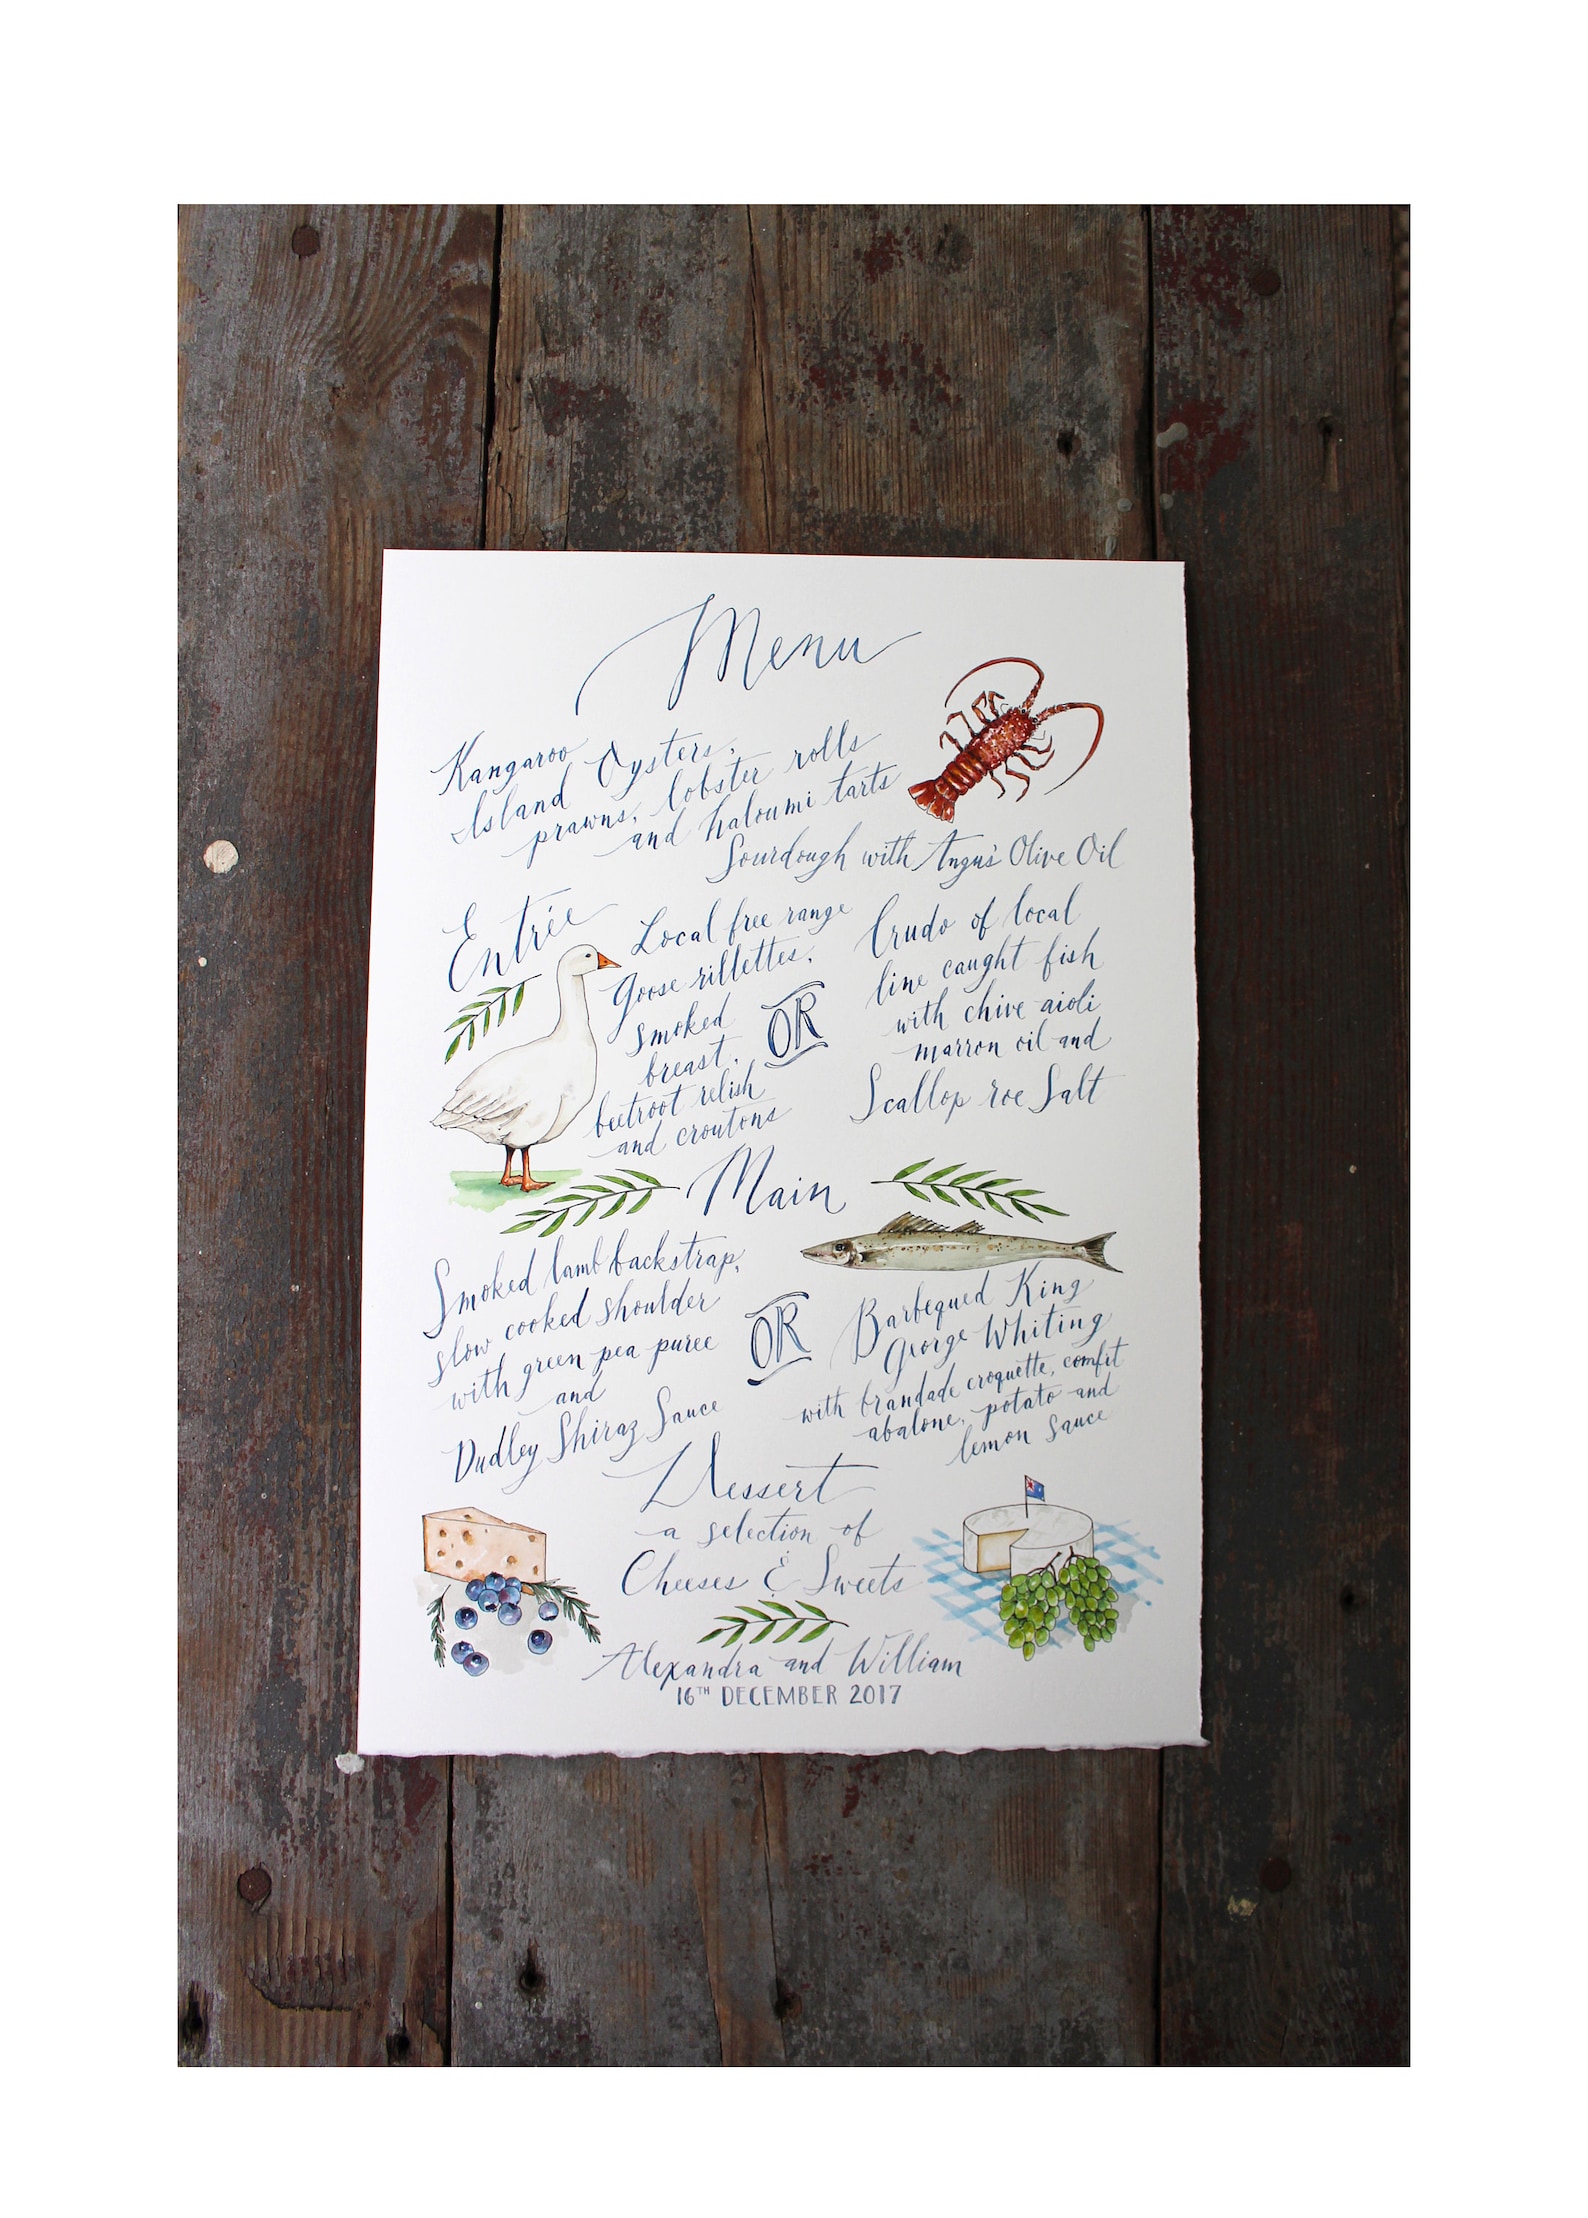 Menu
Kangaroo
Island Oysters,
prawns, lobster rolls
and haloumi tarts
Sourdough with Angus' Olive Oil
Entrée
Local free range
Goose rillettes,
smoked
breast,
beetroot relish
and croutons
OR
Crudo of local
line caught fish
with chive aioli
marron oil and
Scallop roe Salt
Main
Smoked lamb backstrap,
slow cooked shoulder
with green pea puree
and
Dudley Shiraz Sauce
OR
Barbequed King
George Whiting
with brandade croquette, comfit
abalone, potato and
lemon sauce
Dessert
a selection of
Cheeses & Sweets
Alexandra and William
16TH DECEMBER 2017